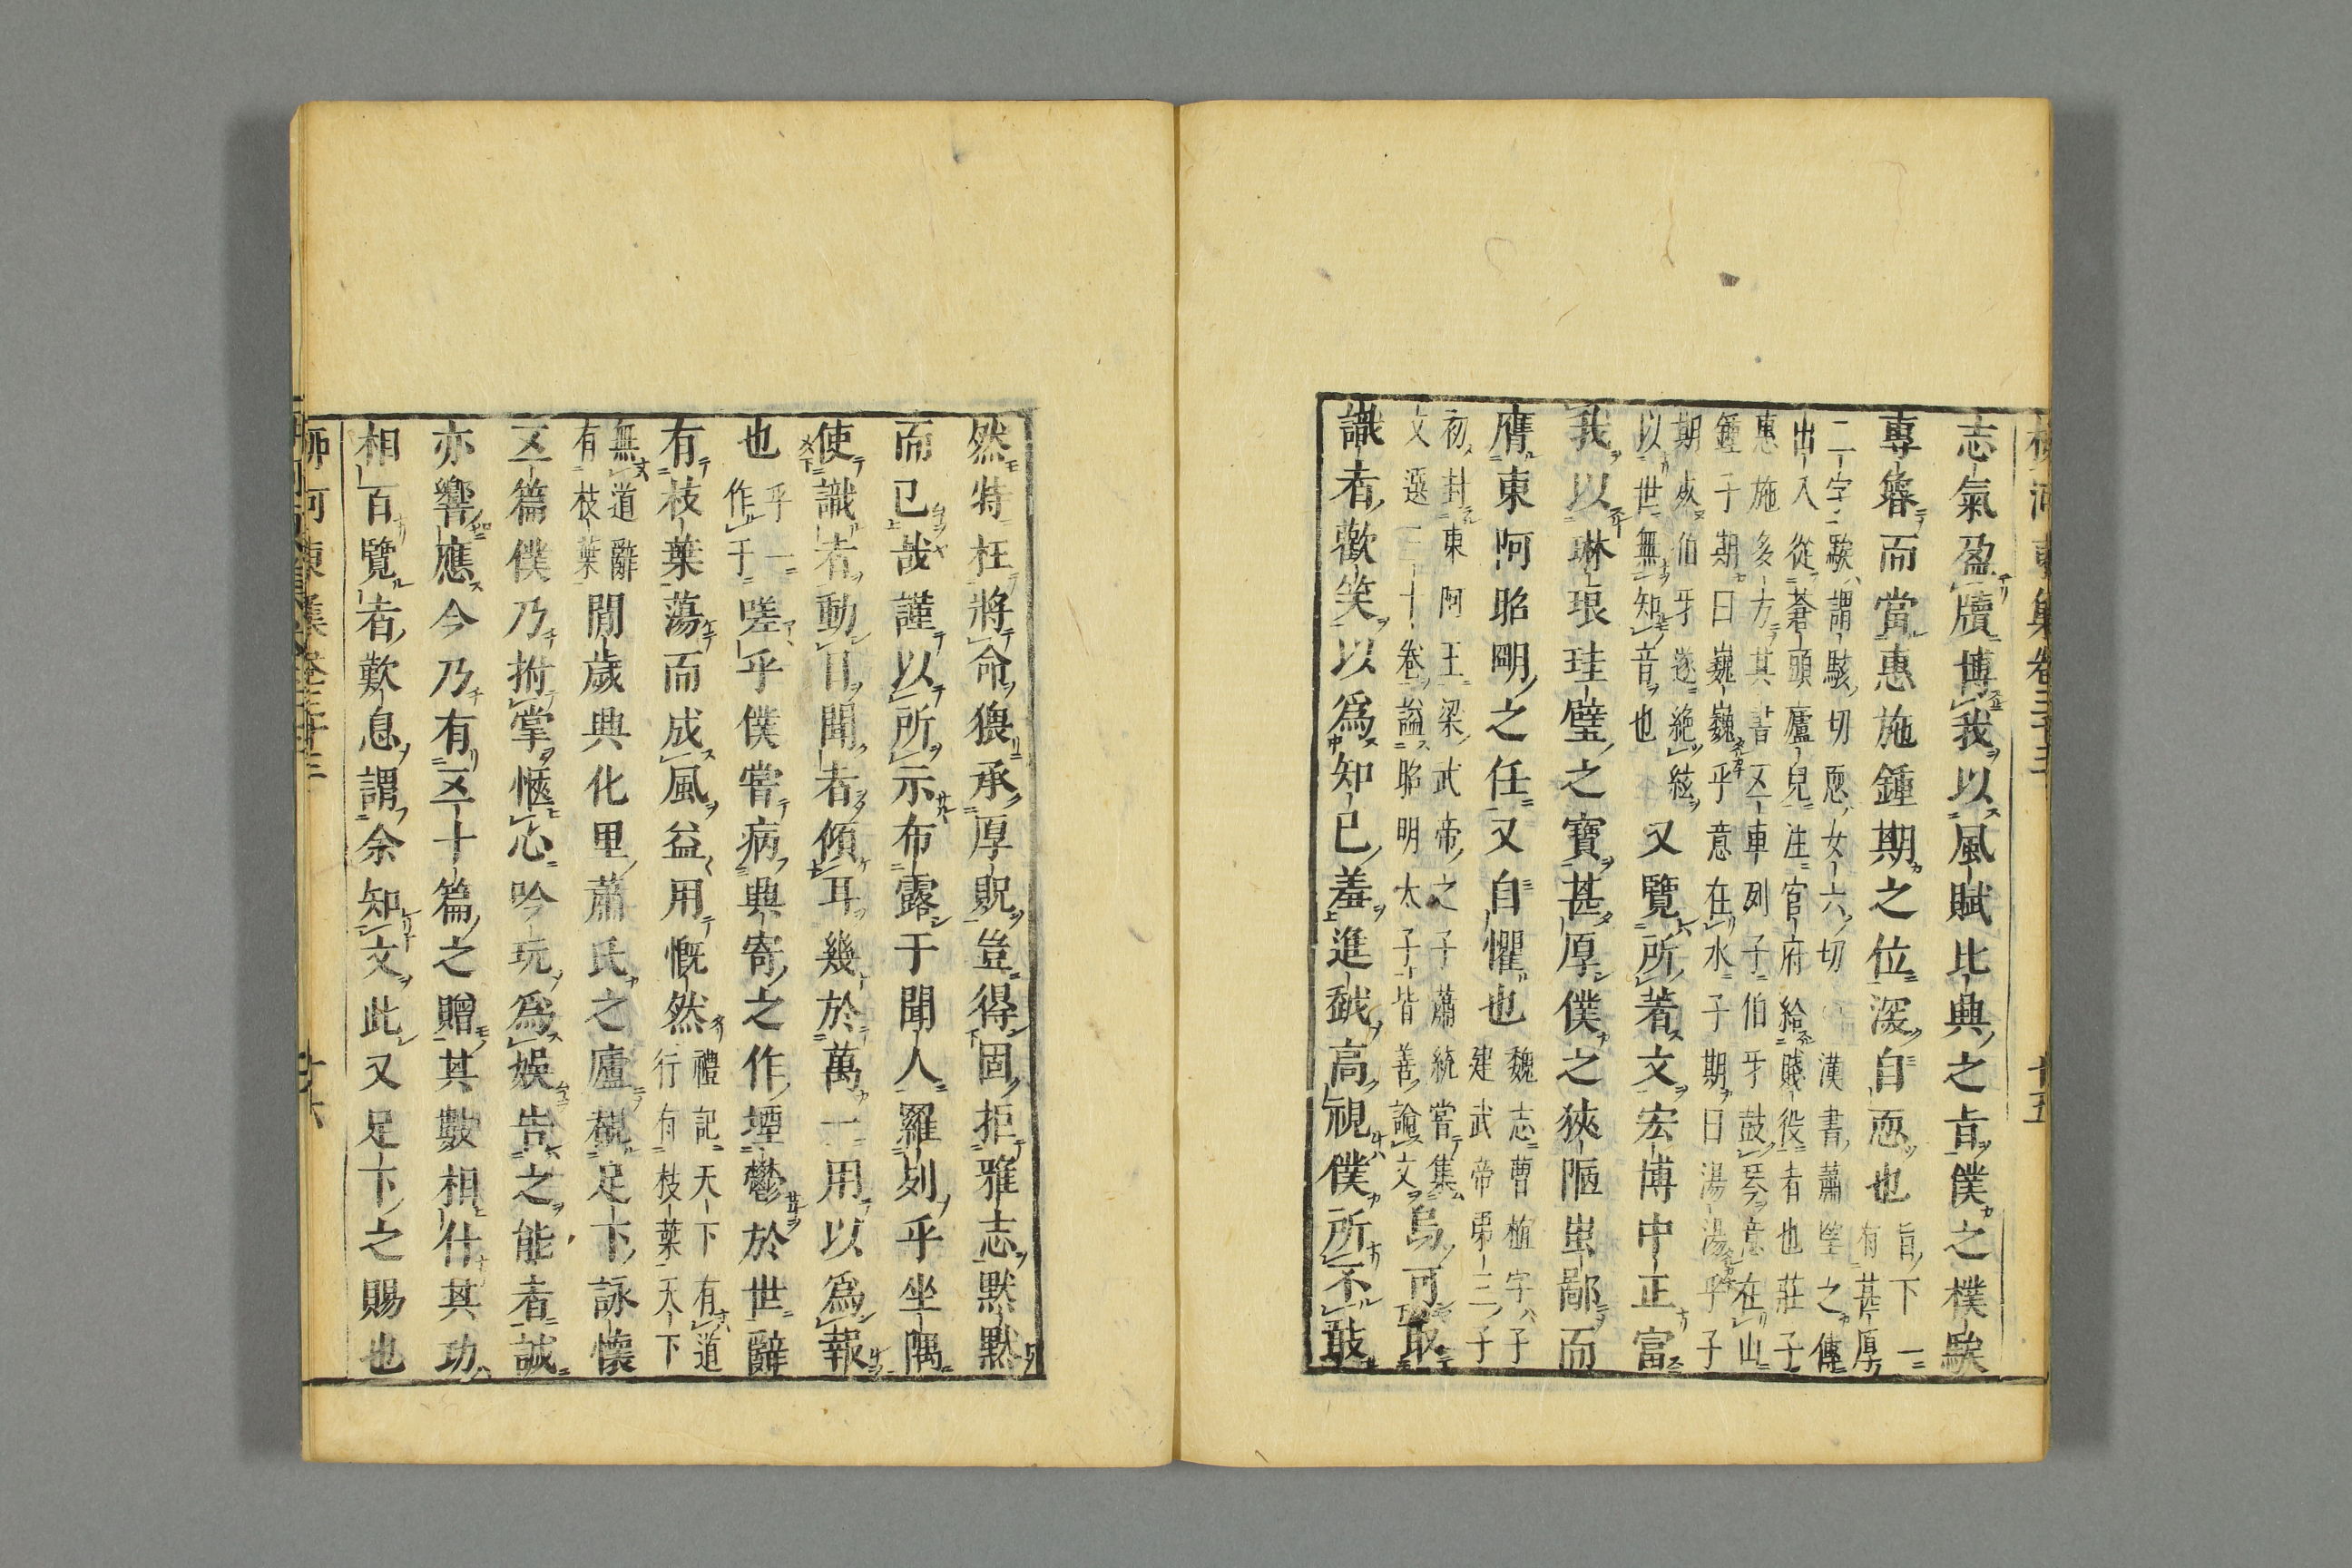 志氣盈牘博我以風賦比典之旨僕之樸騃
專魯而當惠施鍾期之位深自恧也旨下一
有甚厚
二字騃謂駭切恧女六切漢書蕭望之傳
出入從蒼頭廬兒注官府給賤役者也莊子
惠施多方其書五車列子伯牙鼓琴意在山
鍾子期曰巍巍乎意在水子期曰湯湯乎子
期死伯牙遂絶絃
以世無知音也
又覽所著文宏博中正富
我以琳琅珪璧之寶甚厚僕之狹陋蚩鄙而
膺東阿昭明之任又自懼也魏志曹植字子
建武帝弟三子
初封東阿王梁武帝之子蕭統嘗集
文選三十卷謚昭明太子皆善論文
烏可取
識者歡笑以爲知己羞進越高視僕所不敢
然特枉將命猥承厚貺豈得固拒雅志默默
而已哉謹以所示布露于聞人羅列乎坐隅
使識者動目聞者傾耳幾於萬一用以爲報
也乎一
作于
嗟乎僕嘗病典寄之作堙鬱於世辭
有枝葉蕩而成風益用慨然禮記天下有道
行有枝葉天下
無道辭
有枝葉
閒歲典化里蕭氏之廬覩足下詠懷
五篇僕乃拊掌愜心吟玩爲娛告之能者誠
亦響應今乃有五十篇之贈其數相什其功
相百覽者歎息謂余知文此又足下之賜也
十六